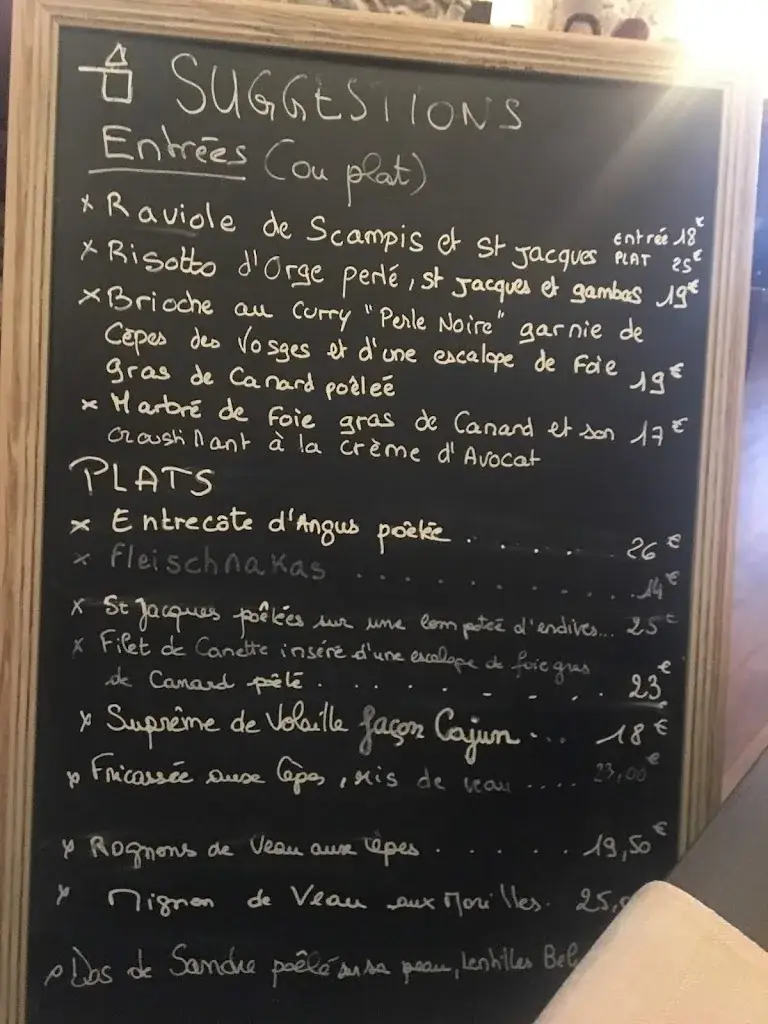 SUGGESTIONS
Entrées (ou plat)
x Raviole de Scampis et St Jacques Entrée 18€
PLAT 25€
x Risotto d'Orge perlé, St Jacques et gambas 19€
x Brioche au Curry "Perle Noire" garnie de
Cèpes des Vosges et d'une escalope de Foie
gras de Canard poêleé 19€
x Marbré de Foie gras de Canard et son 17€
croustillant à la crème d'Avocat
PLATS
x Entrecôte d'Angus poêlée ..... 26€
x Fleischnakas ............ 14€
x St Jacques poêlées sur une compotée d'endives... 25€
x Filet de Canette inséré d'une escalope de foie gras
de Canard pôêlé ......... 23€
x Suprême de Volaille façon Cajun ... 18€
x Fricassée aux Cèpes, ris de veau .... 23,00€
x Rognons de Veau aux cèpes ...... 19,50€
x Mignon de Veau aux Morilles. 25,
x Dos de Sandre poêlé sur sa peau, lentilles Bel